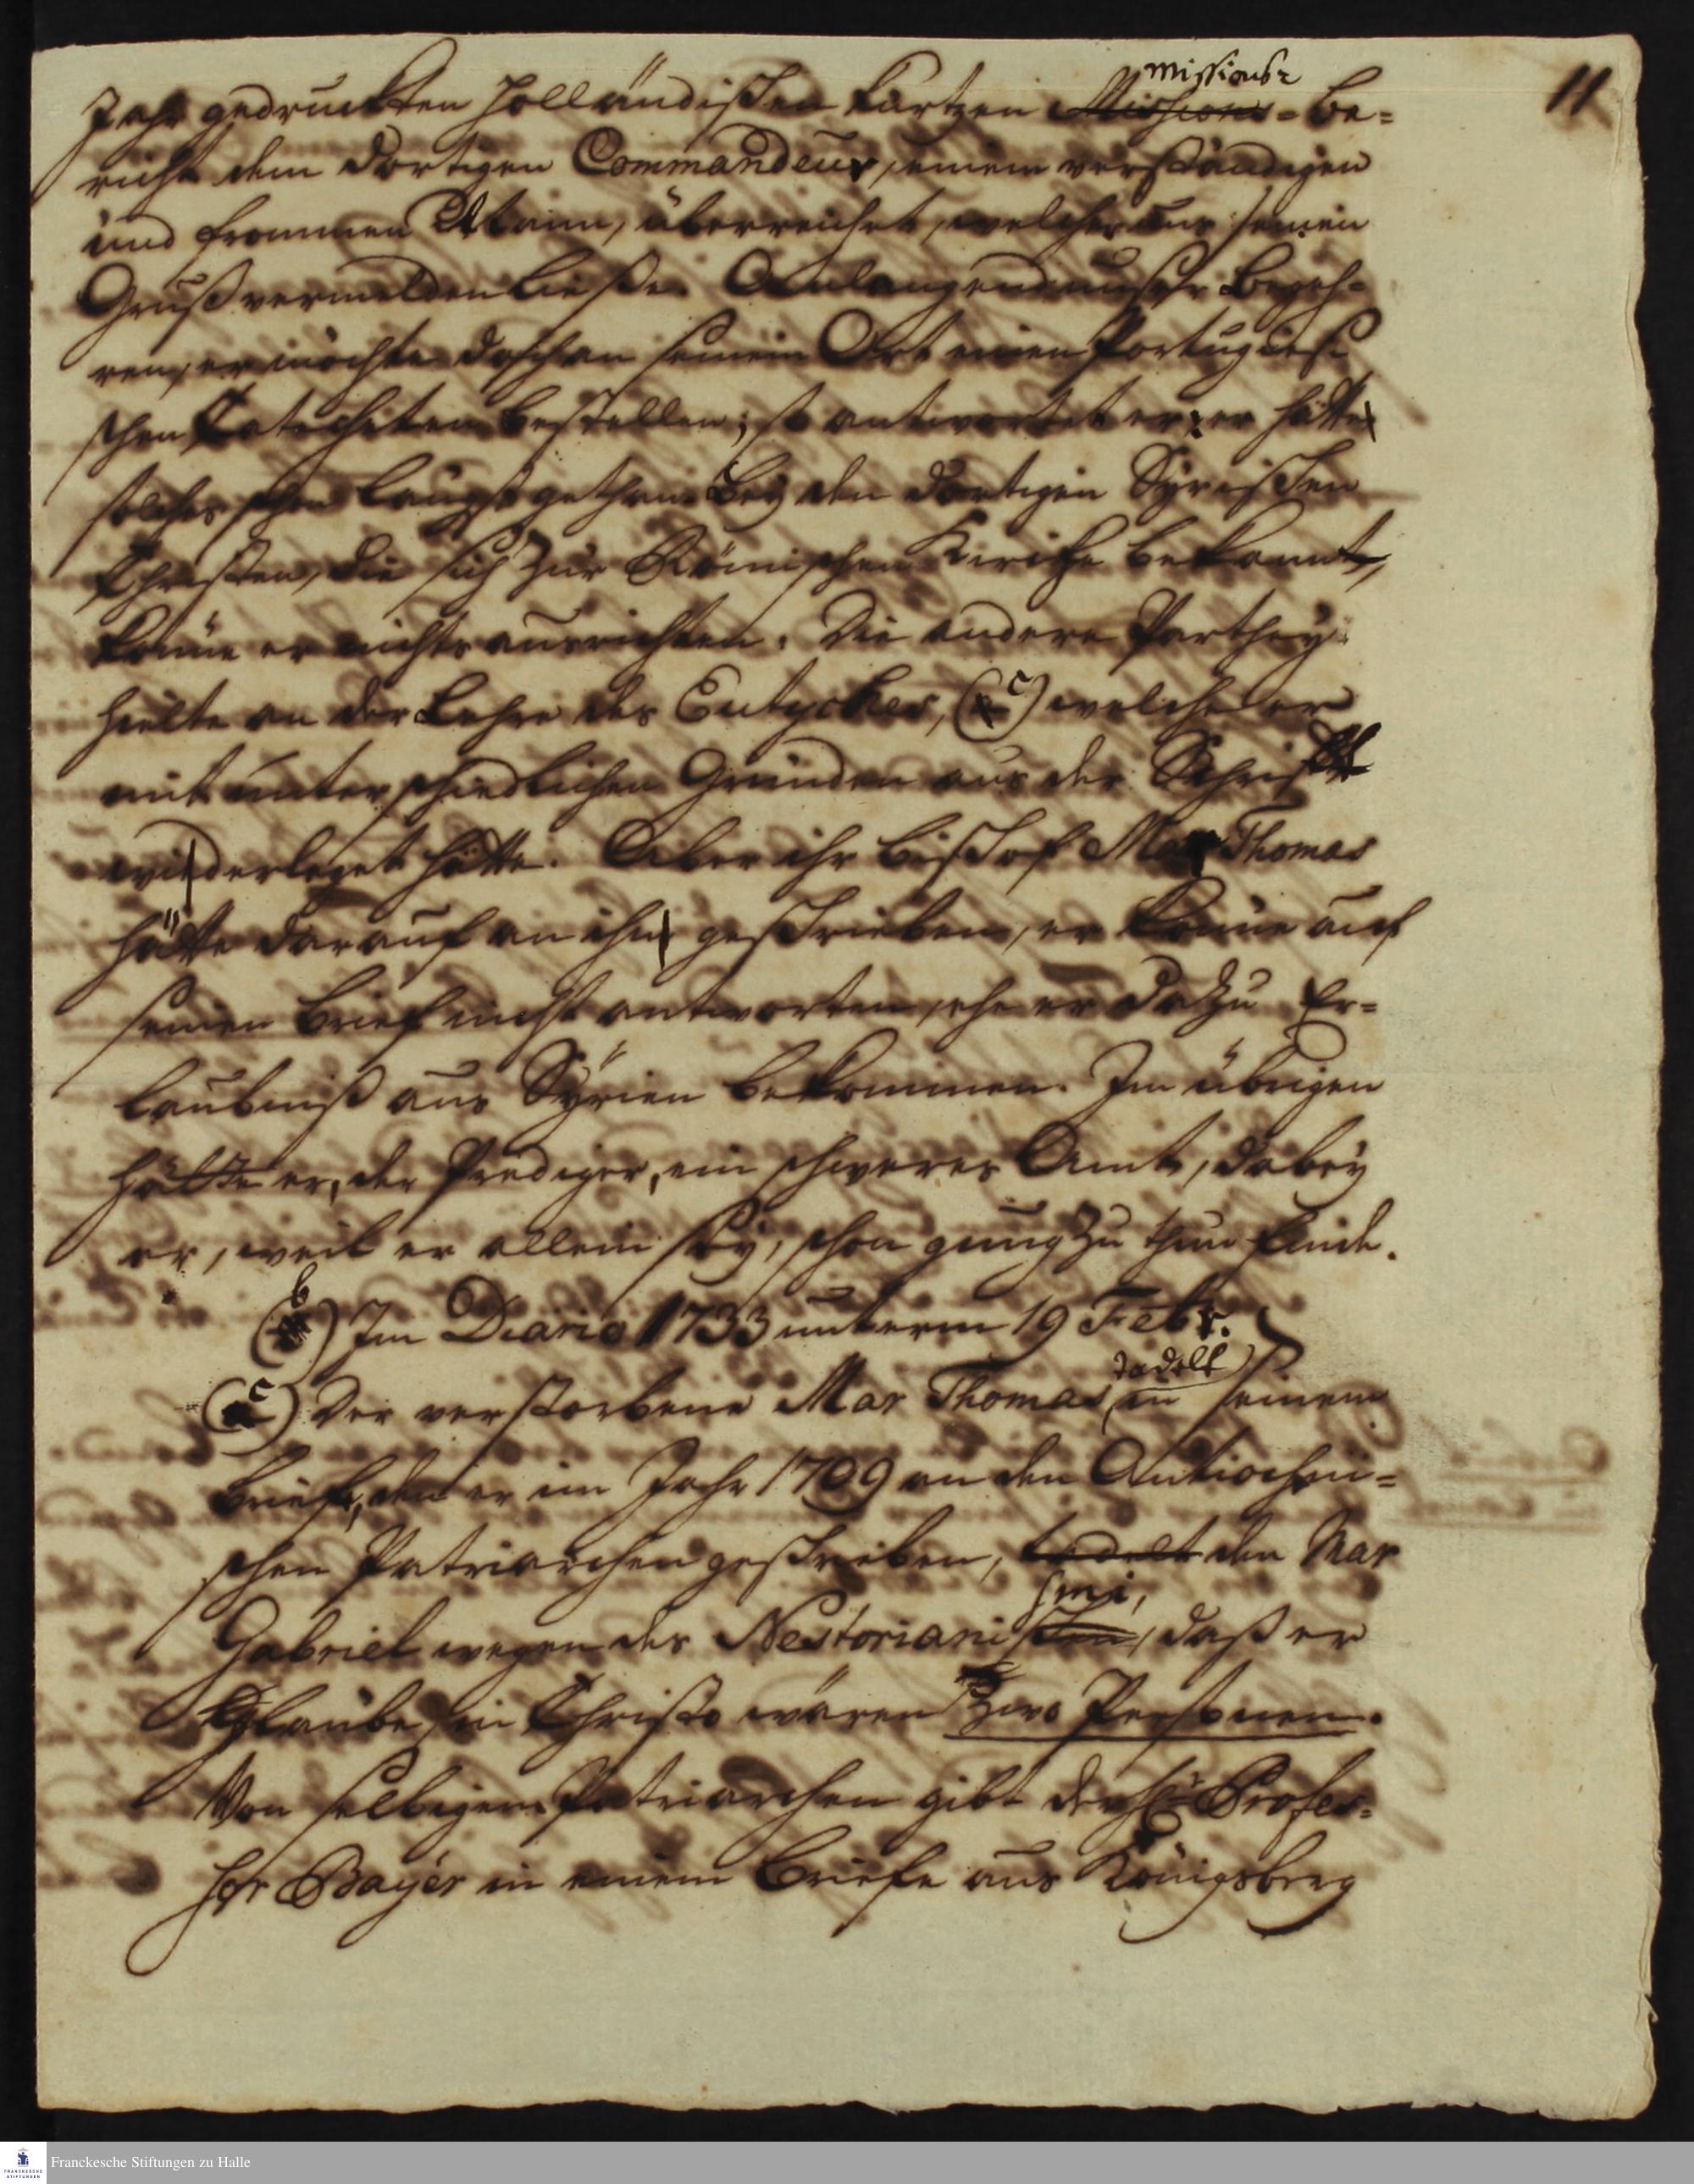 11
missions-
Jahr gedruckten Holländischen kurtzen Missions-Be-
richt dem dortigen Commandeur, einem verständigen
und frommen Mann, überreichet, welcher uns seinen
Gruß vermelden ließe. Anlangend unser Begeh-
ren, er möchte doch an seinem Ort einen Portugiesi-
schen Catecheten bestellen; so antwortet er: er hätte
solches schon längst gethan. Bey den dortigen Syrischen
Christen, die sich zur Römischen Kirche bekannt,
könne er nichts ausrichten. Die andere Parthey
hielte an der Lehre des Eutyches, (c) welche er
mit unterschiedlichen Gründen aus der Schrifft
wiederleget hätte. Aber ihr Bischof Mar Thomas
hätte darauf an ihn geschrieben, er könne auf
seinen Brief nicht antworten, ehe er dazu Er-
laubniß aus Syrien bekommen. Im übrigen
hätte er, der Prediger, ein schweres Amt, dabey
er, weil er allein sey, schon gnug zu thun finde.
(b) Im Diario 1733 unterm 19 Febr.
tadelt
(c) Der verstorbene Mar Thomas in seinem
Brief, den er im Jahr 1709 an den Antiocheni-
schen Patriarchen geschrieben, tadelt den Mar
smi,
Gabriel wegen des Nestorianisten, daß er
glaube, in Christo wären zwo Personen.
Von selbigem Patriarchen gibt der Hr. Profes-
sor Bayer in einem Briefe aus Königsberg
Franckesche Stiftungen zu Halle